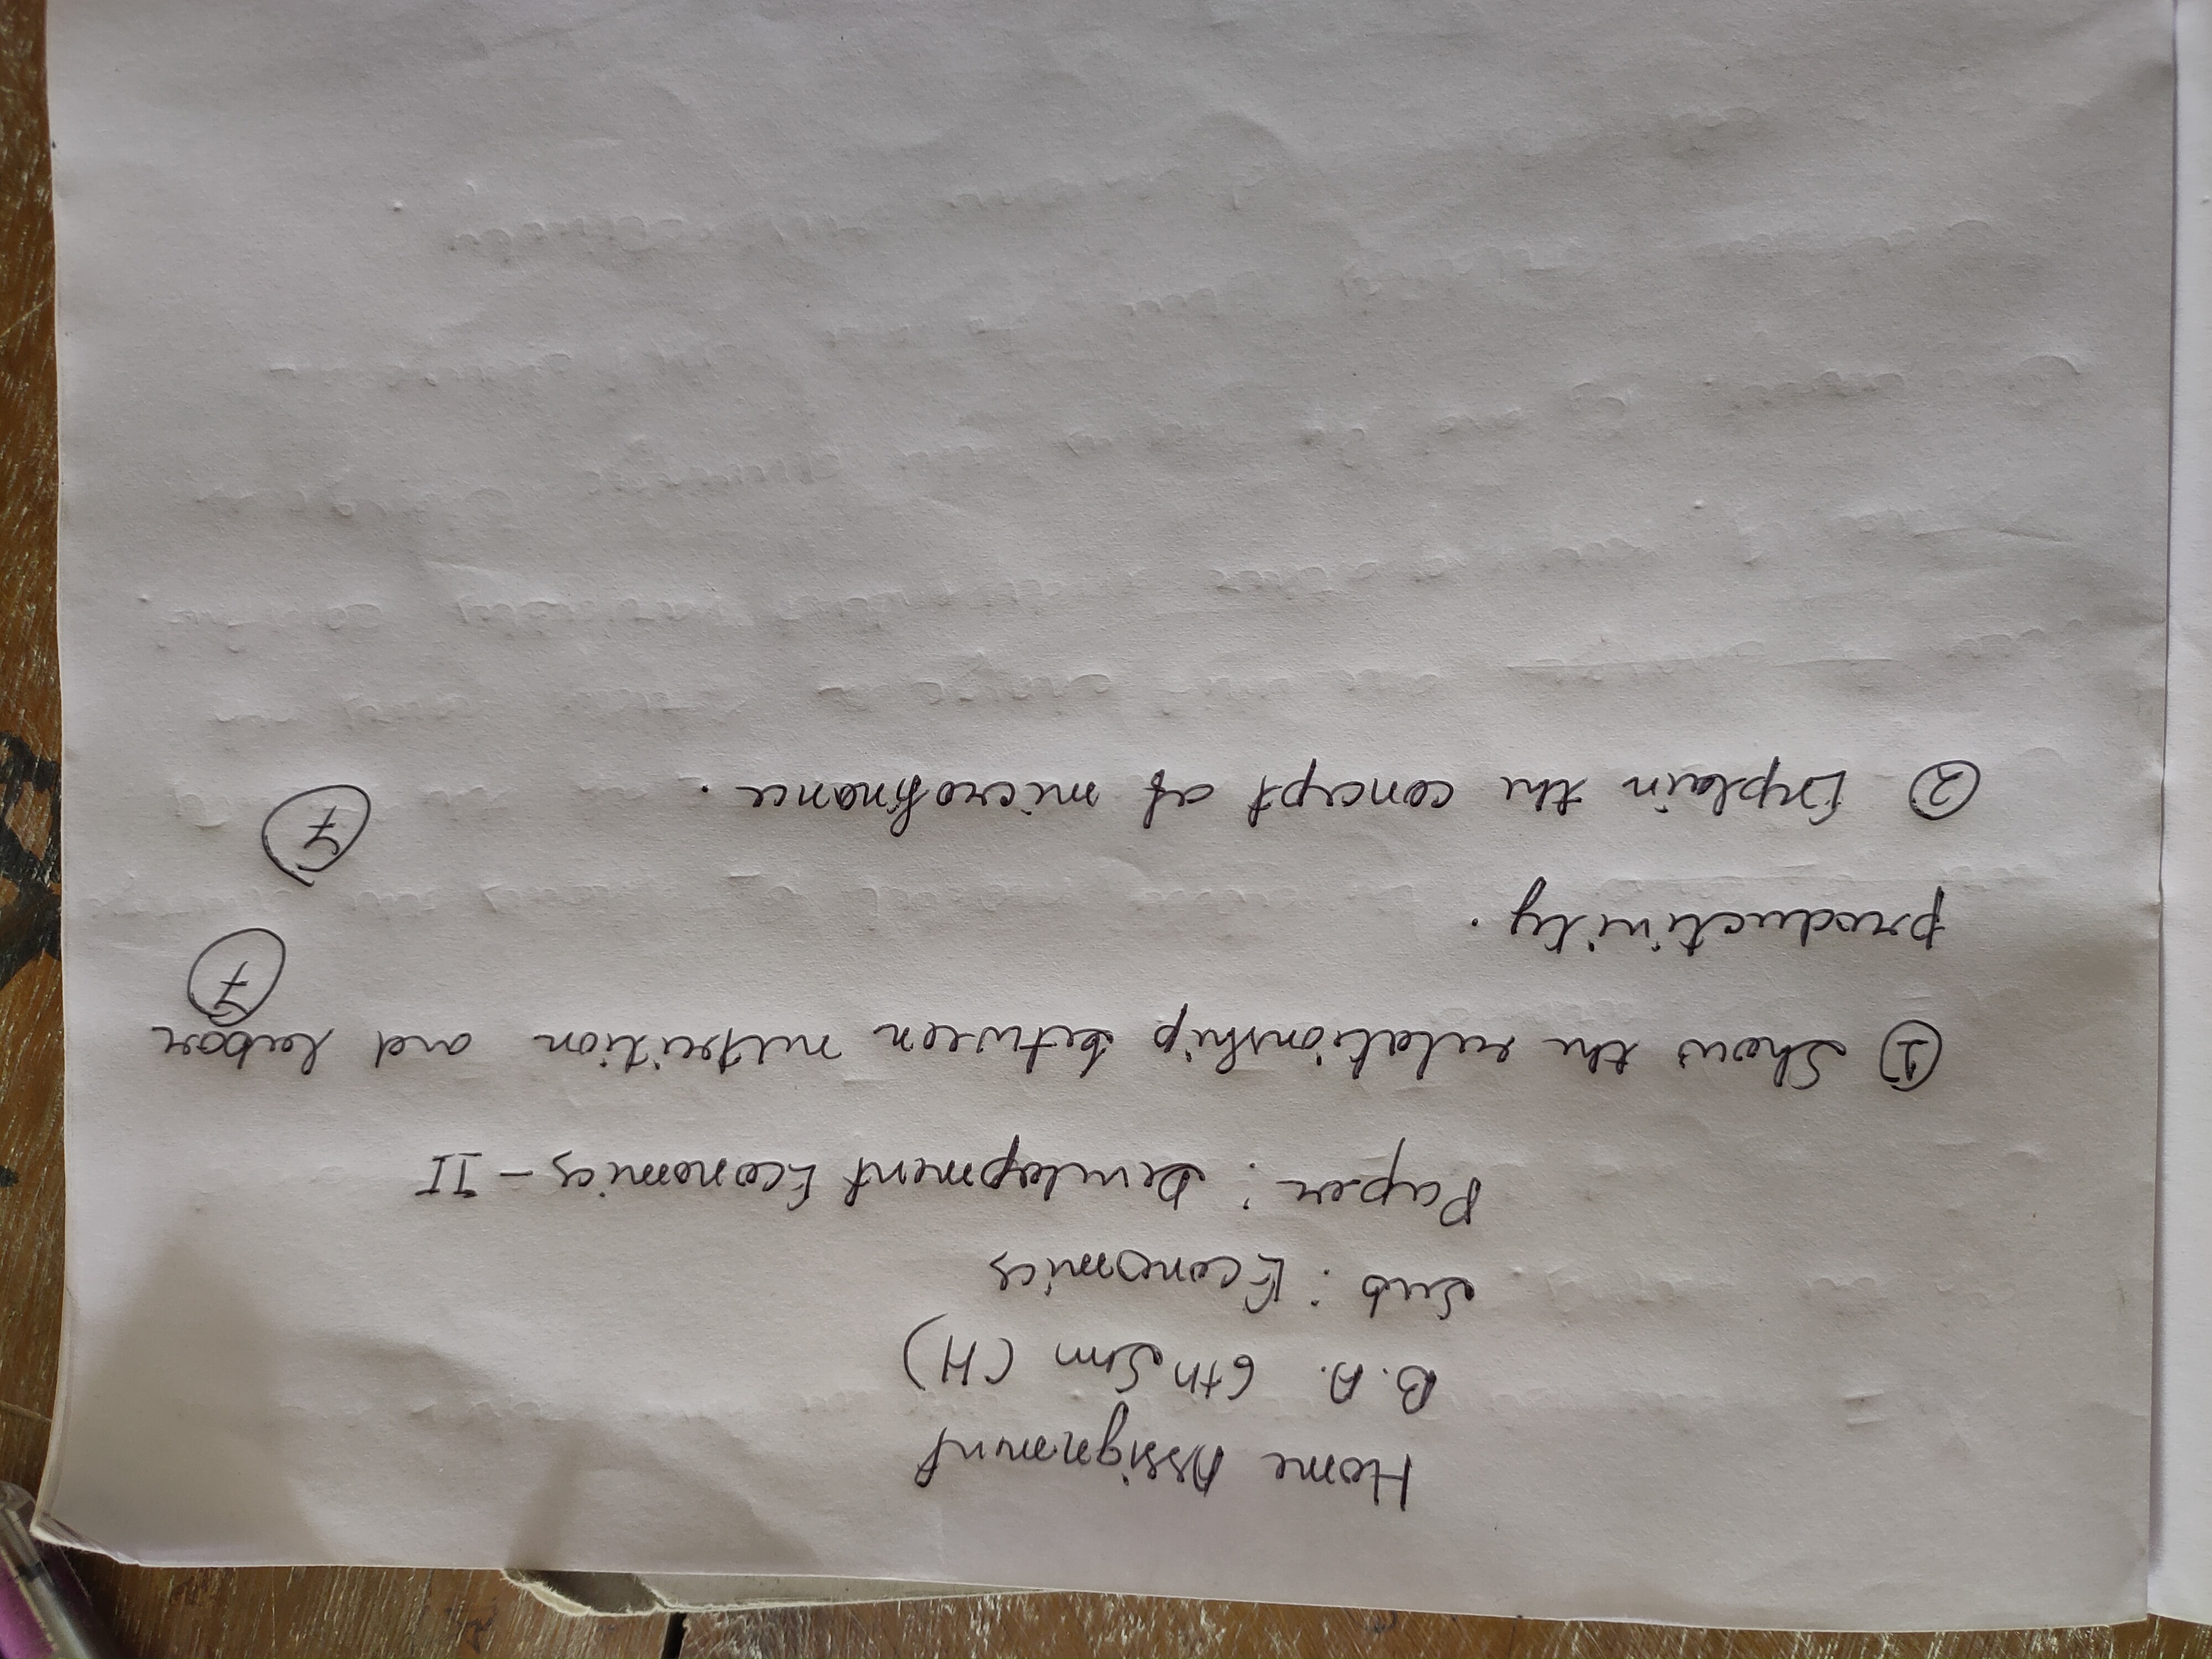 Home Assignment
B.A. 6th Sem (H)
Sub : Economics
Paper : Development Economics - II
① Show the relationship between nutrition and labor
productivity. 7
② Explain the concept of microfinance. 7